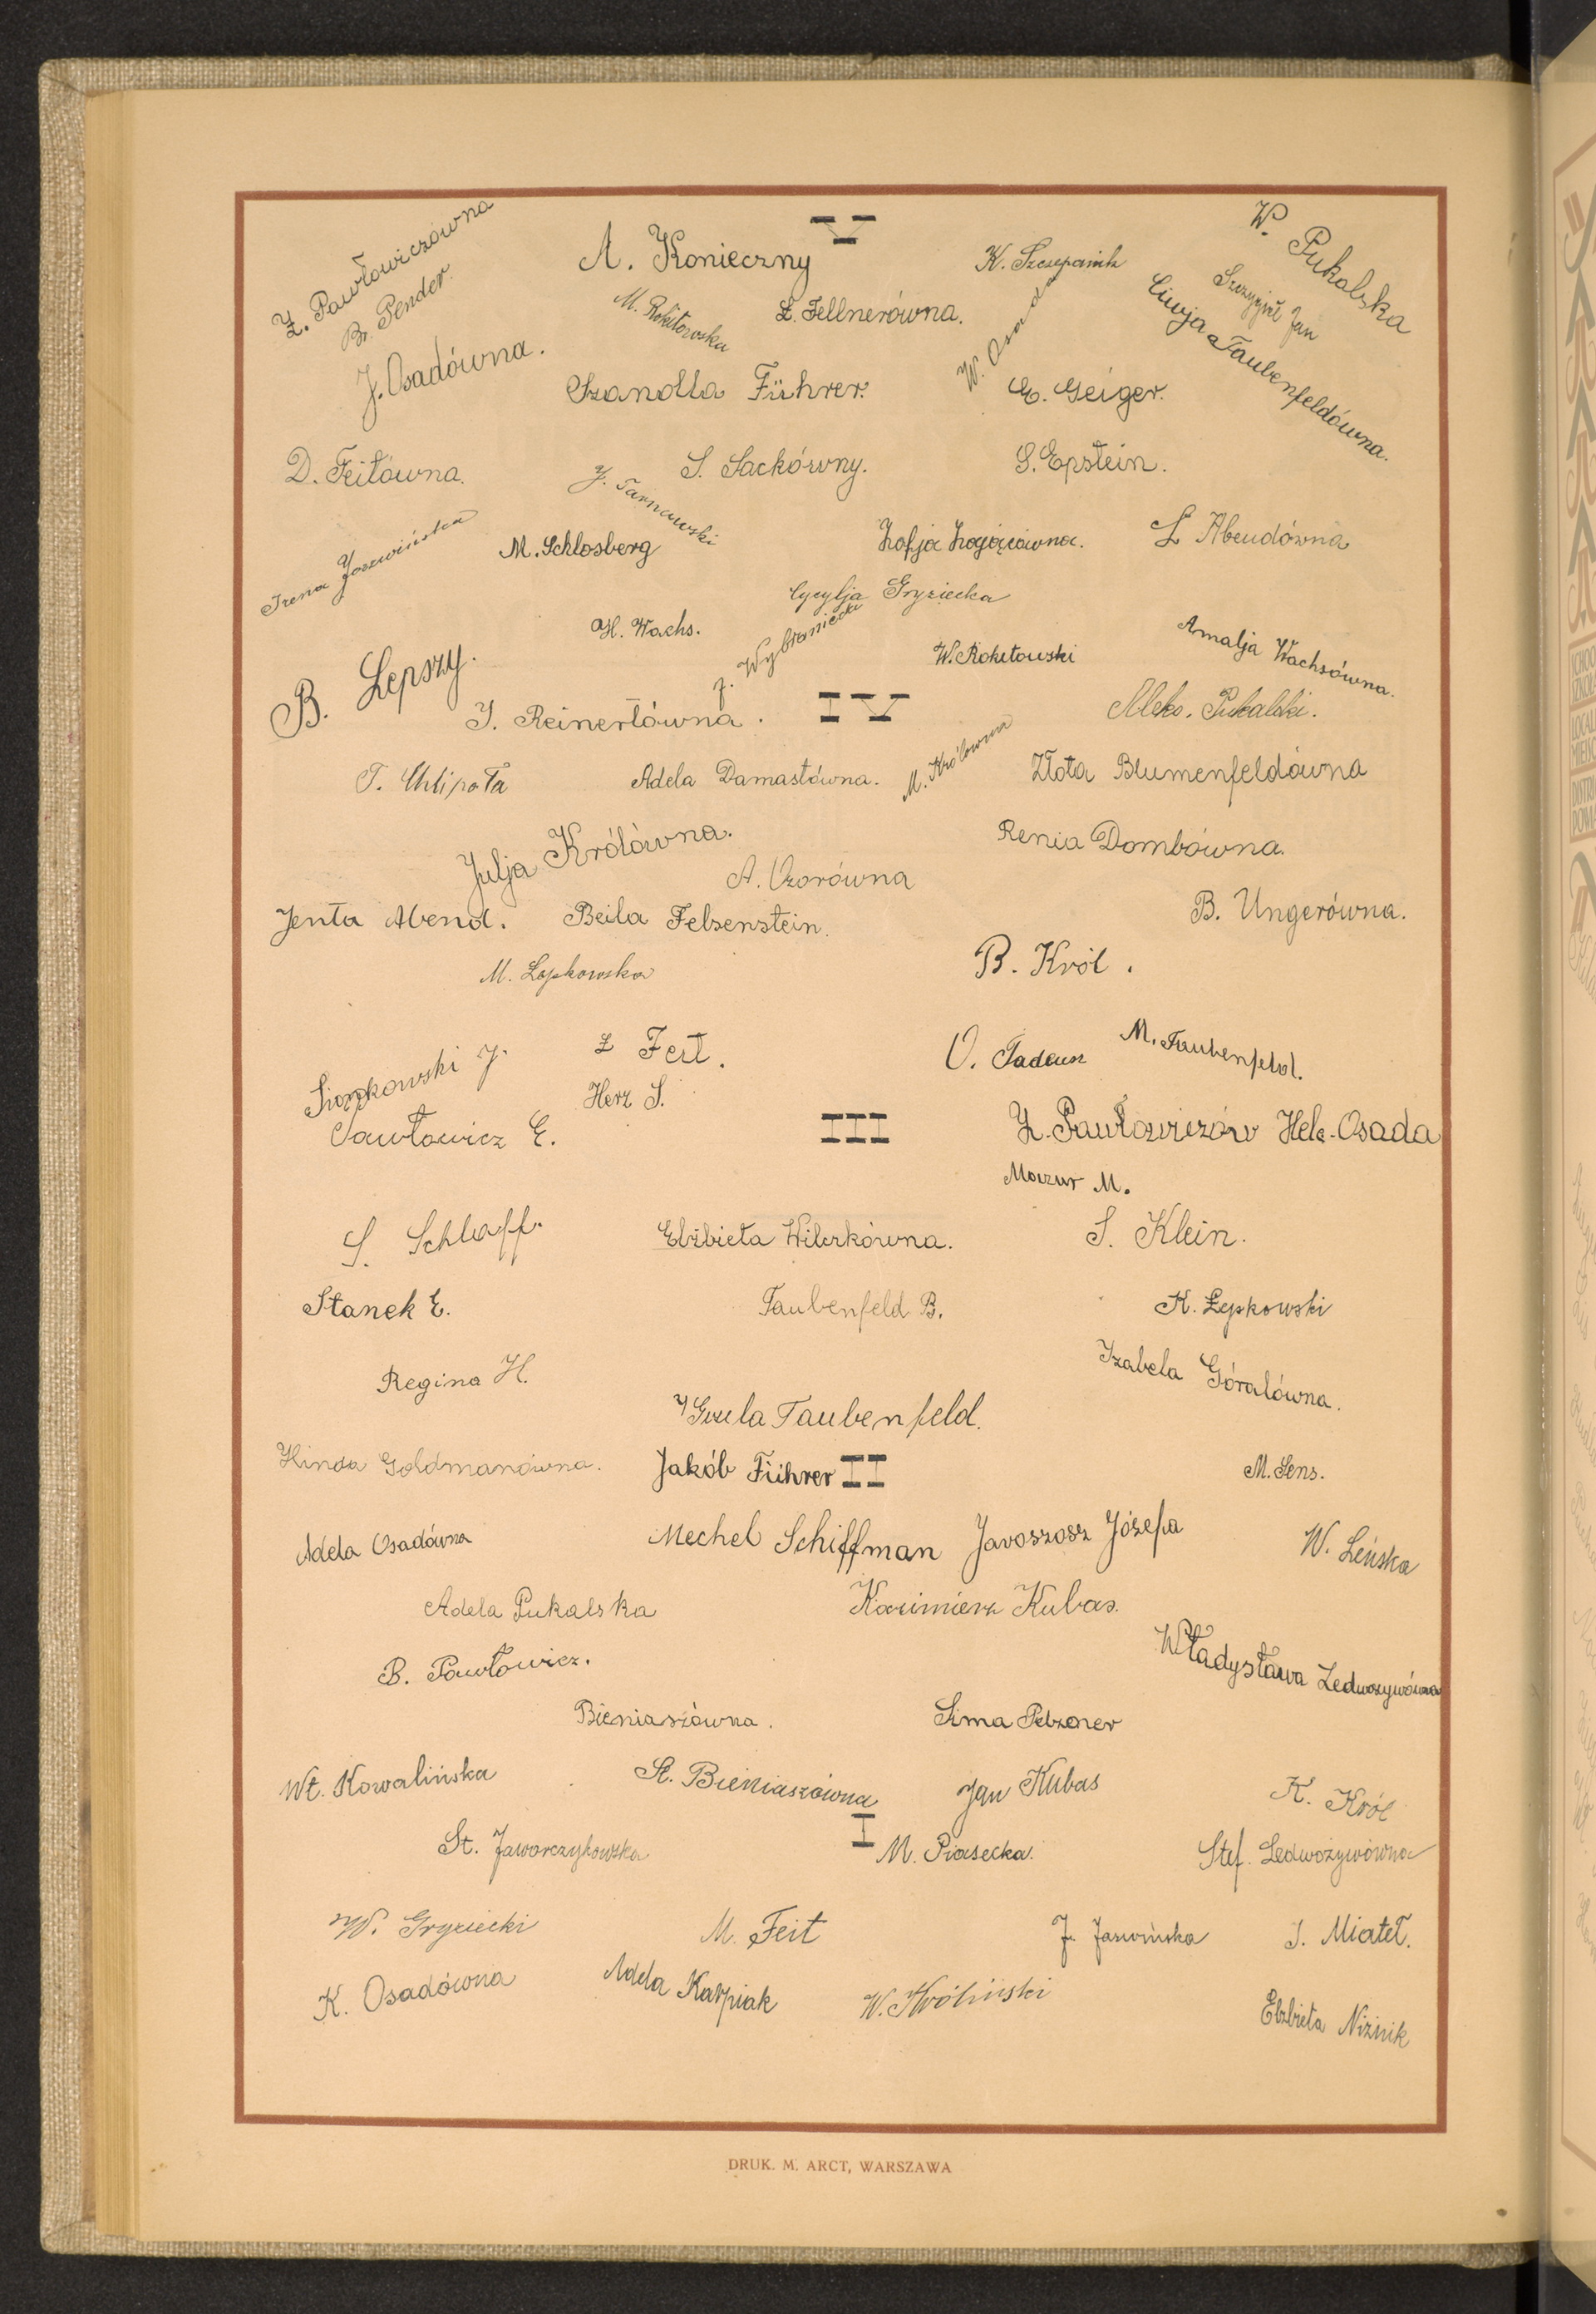 V
Z. Pawłowiczówna
A. Konieczny
K. Szczepanik
W. Pukalska
Br. Pender.
M. Rokitowska
Ł. Fellnerówna.
W. Osada
Szczygieł Jan
Ciwja Taubenfeldówna.
J. Osadówna.
Szandla Führer.
E. Geiger.
D. Feitówna.
J. Tarnawski
S. Sackówny.
S. Epstein.
Irena
M. Schlosberg
Zofja Zającówna.
Ł Abendówna
Cycylja Gryziecka
H. Wachs.
J. Wybraniecki
W. Rokitowski
Amalja Wachsówna.
B. Lepszy.
J. Reinertówna.
IV
Aleks. Pukalski.
T. Chlipała
Adela Damastówna.
M. Królowna
Złota Blumenfeldówna
Julja Królówna.
Renia Dombówna.
A.
Jenta Abend.
Beila Felsenstein.
B. Ungerówna.
M. Łopkowska
B. Król.
J.
Ł Feit.
O. Tadeusz
M. Taubenfeld.
Herz S.
Pawłowicz E.
III
Z. Pawłowiczów
Hele. Osada
Mazur M.
S. Schlaff.
Elżbieta Wilczkówna.
S. Klein.
Stanek E.
Taubenfeld B.
K. Łepkowski
Regina H.
Izabela Góralówna.
Gizela Taubenfeld.
Hinda Goldmanówna.
Jakób Führer
II
M. Sens.
Adela Osadówna
Mechel Schiffman
Jaroszosz Józefa
W. Leńska
Adela Pukalska
Kazimierz Kubas.
B. Pawłowicz.
Władysława Ledwożywówna
Bieniaszówna.
Sima Pelzner
Wł. Kowalińska
St. Bieniaszówna
Jan Kubas
K. Król
I
St. Jaworczykowska
M. Piasecka.
Stef. Ledwożywówna
W. Gryziecki
M. Feit
J. Jaswińska
J. Miateł.
K. Osadówna
Adela Karpiak
W. Króliński
Elżbieta Niżnik
DRUK. M. ARCT, WARSZAWA